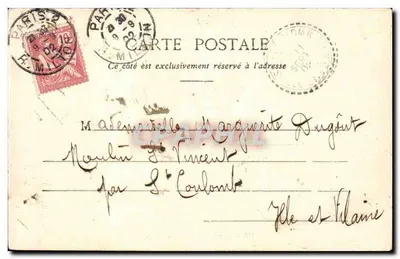 PARIS 2
R. MILTON
02
10
PARIS
R. MILTON
02
CARTE POSTALE
Ce côté est exclusivement réservé à l'adresse
Mademoiselle Marguerite Dugoût
Moulin St Vincent
par St Coulomb
Ille et Vilaine